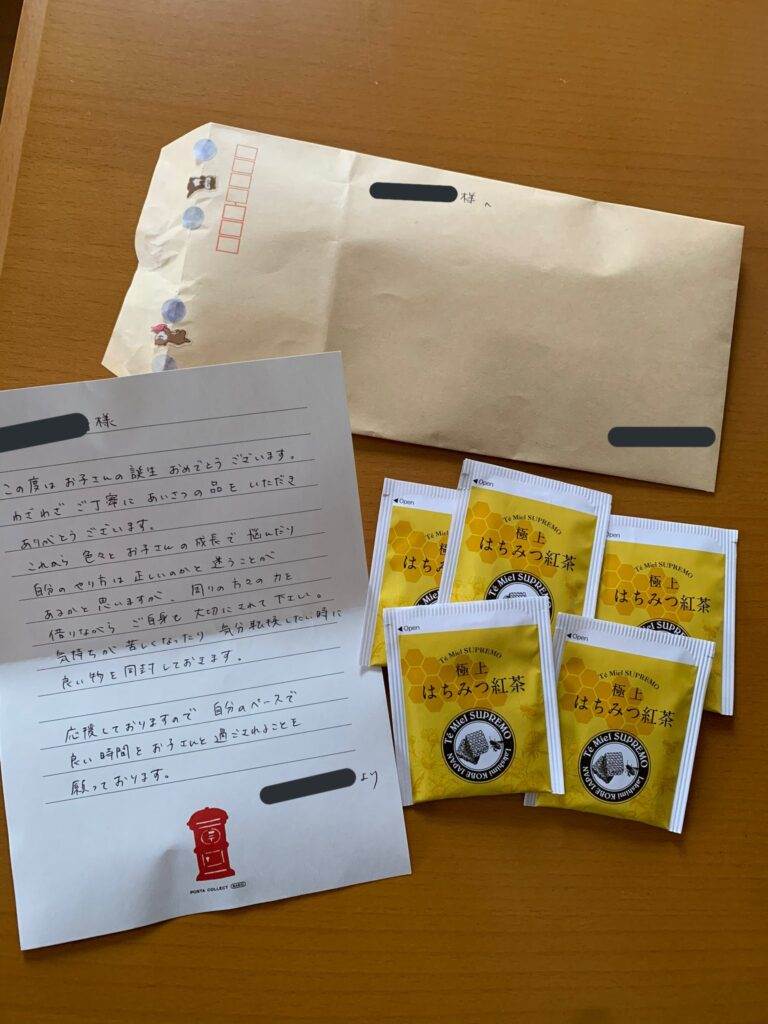 様へ
様
この度はお子さんの誕生 おめでとう ございます。
わざわざ ご丁寧に あいさつの品を いただき
ありがとうございます。
これから 色々と お子さんの成長で 悩んだり
自分のやり方は正しいのかと 迷うことが
あるかと思いますが、周りの方々の力を
借りながら ご自身も 大切にされて下さい。
気持ちが 苦しくなったり 気分転換したい時に
良い物を同封しておきます。
応援しておりますので 自分のペースで
良い時間を お子さんと 過ごされることを
願っております。
より
POSTA COLLECT
Open
Té Miel SUPREMO
極上
はちみつ紅茶
Open
Té Miel SUPREMO
極上
はちみつ紅茶
Té Miel SUPREMO
Open
Té Miel SUPREMO
極上
はちみつ紅茶
Open
Té Miel SUPREMO
極上
はちみつ紅茶
Té Miel SUPREMO
Lakshimi KOBE JAPAN
Open
Té Miel SUPREMO
極上
はちみつ紅茶
Té Miel SUPREMO
Lakshimi KOBE JAPAN